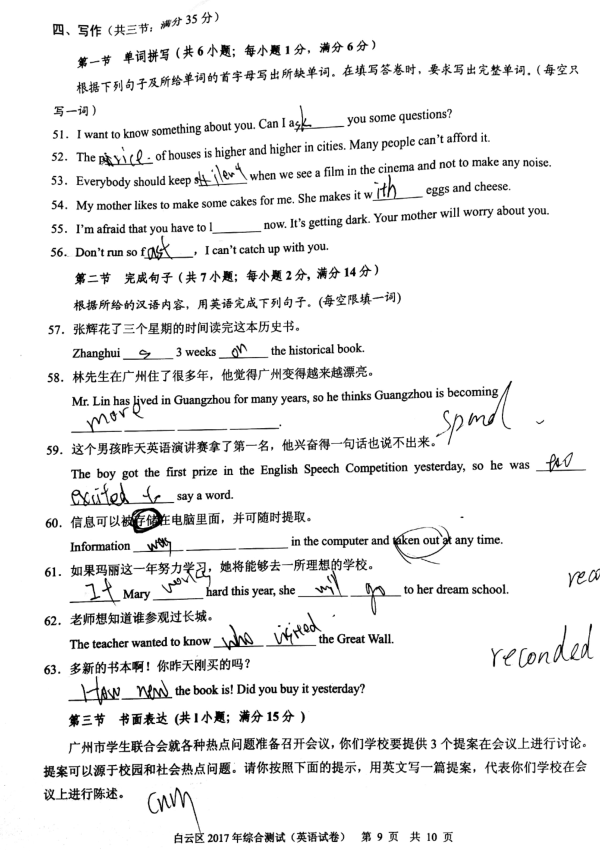 四、写作（共三节；满分 35 分）
第一节 单词拼写（共 6 小题；每小题 1 分，满分 6 分）
根据下列句子及所给单词的首字母写出所缺单词。在填写答卷时，要求写出完整单词。（每空只
写一词）
51．I want to know something about you. Can I ask you some questions?
52．The of houses is higher and higher in cities. Many people can't afford it.
53．Everybody should keep silent when we see a film in the cinema and not to make any noise.
54．My mother likes to make some cakes for me. She makes it with eggs and cheese.
55．I'm afraid that you have to l______ now. It's getting dark. Your mother will worry about you.
56．Don't run so fast, I can't catch up with you.
第二节 完成句子（共 7 小题；每小题 2 分, 满分 14 分）
根据所给的汉语内容，用英语完成下列句子。(每空限填一词)
57．张辉花了三个星期的时间读完这本历史书。
Zhanghui 3 weeks on the historical book.
58．林先生在广州住了很多年，他觉得广州变得越来越漂亮。
Mr. Lin has lived in Guangzhou for many years, so he thinks Guangzhou is becoming
more ______ ______.
spend
59．这个男孩昨天英语演讲赛拿了第一名，他兴奋得一句话也说不出来。
The boy got the first prize in the English Speech Competition yesterday, so he was too
excited to say a word.
60．信息可以被存储在电脑里面，并可随时提取。
Information ______ ______ in the computer and taken out at any time.
61．如果玛丽这一年努力学习，她将能够去一所理想的学校。
If Mary works hard this year, she will go to her dream school.
reco
62．老师想知道谁参观过长城。
The teacher wanted to know who visited the Great Wall.
reconded
63．多新的书本啊！你昨天刚买的吗？
How new the book is! Did you buy it yesterday?
第三节 书面表达（共 1 小题；满分 15 分 ）
广州市学生联合会就各种热点问题准备召开会议，你们学校要提供 3 个提案在会议上进行讨论。
提案可以源于校园和社会热点问题。请你按照下面的提示，用英文写一篇提案，代表你们学校在会
议上进行陈述。
cnm
白云区 2017 年综合测试（英语试卷） 第 9 页 共 10 页